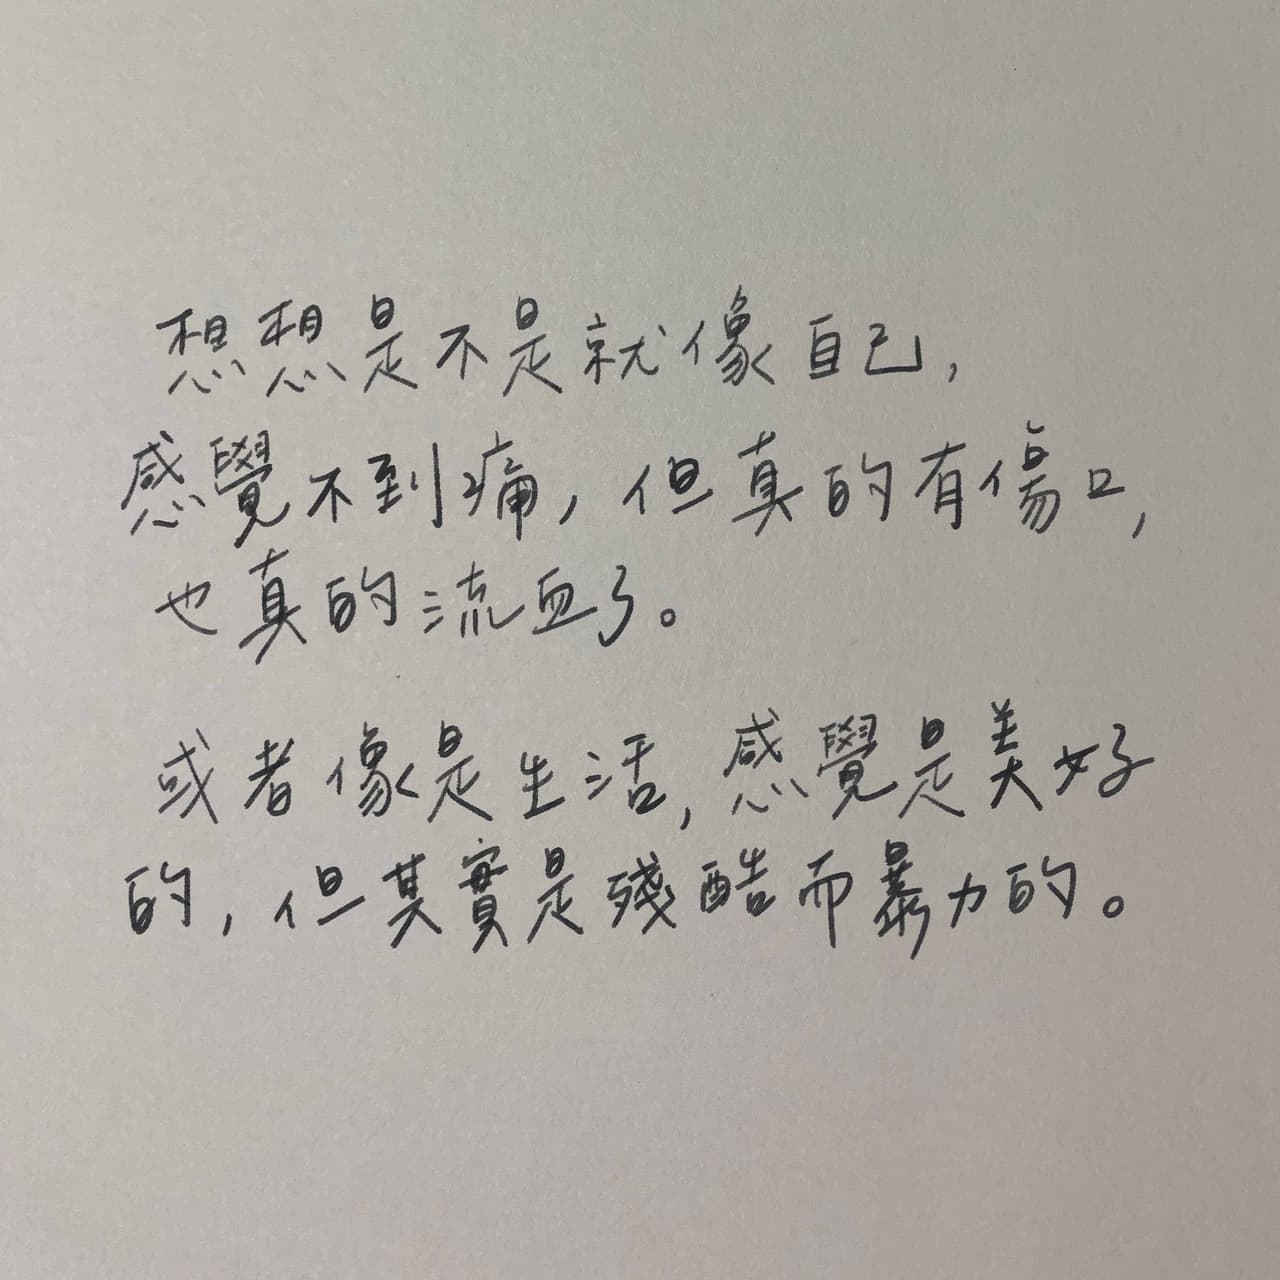 想想是不是就像自己,
感覺不到痛,但真的有傷口,
也真的流血了。
或者像是生活,感覺是美好
的,但其實是殘酷而暴力的。